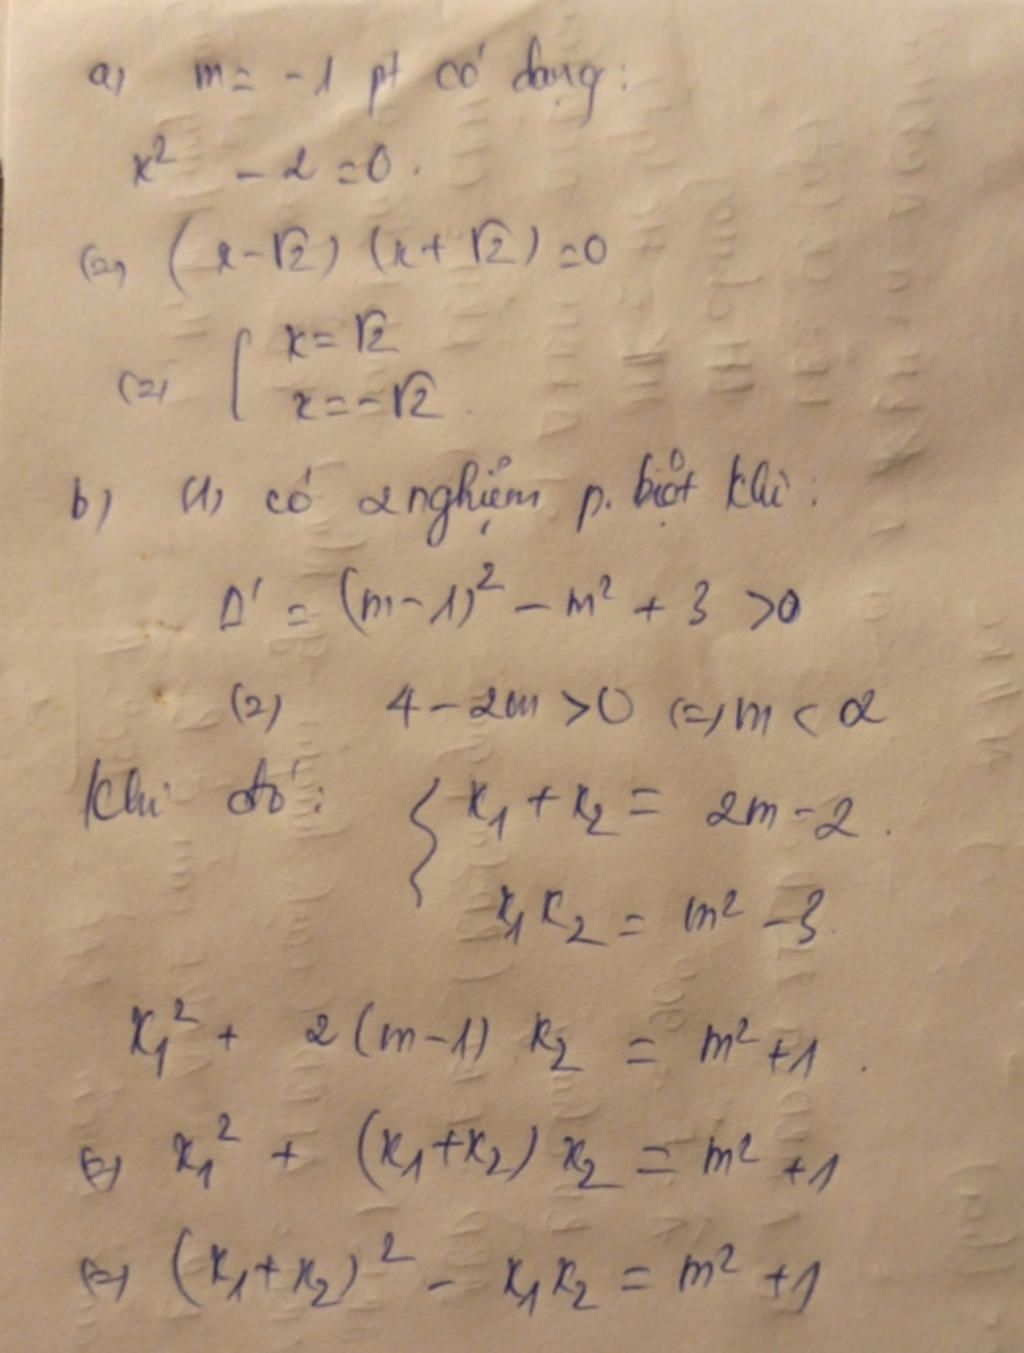 a) m = -1 pt có dạng:
x² - 2 = 0.
(=) (x-√2) (x+√2) = 0
(=) [ x = √2
x = -√2.
b) (1) có 2 nghiệm p. biệt khi:
Δ' = (m-1)² - m² + 3 > 0
(=) 4 - 2m > 0 (=) m < 2
Khi đó: { x₁ + x₂ = 2m - 2.
x₁ x₂ = m² - 3.
x₁² + 2(m-1) x₂ = m² + 1.
(=) x₁² + (x₁+x₂) x₂ = m² + 1
(=) (x₁+x₂)² - x₁x₂ = m² + 1